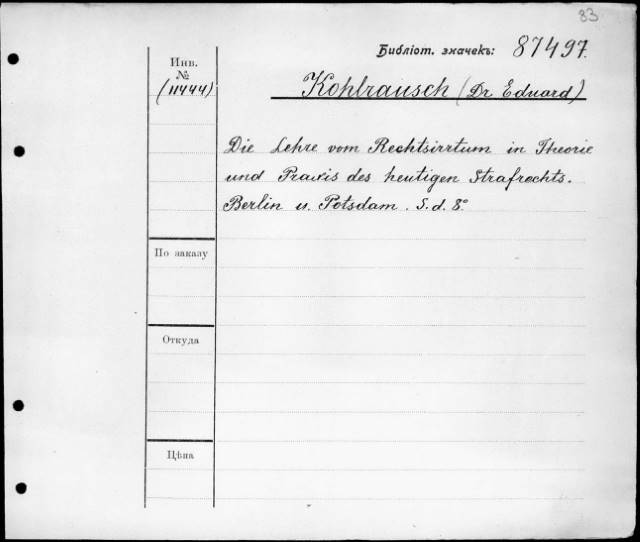 83
Библіот. значекъ: 87497.
Инв.
№
(11444)
Kohlrausch (Dr Eduard)
Die Lehre vom Rechtsirrtum in Theorie
und Praxis des heutigen Strafrechts.
Berlin u. Potsdam. S. d. 8º
По заказу
Откуда
Цѣна